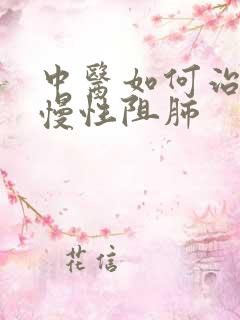 中醫如何治
慢性阻肺
花信